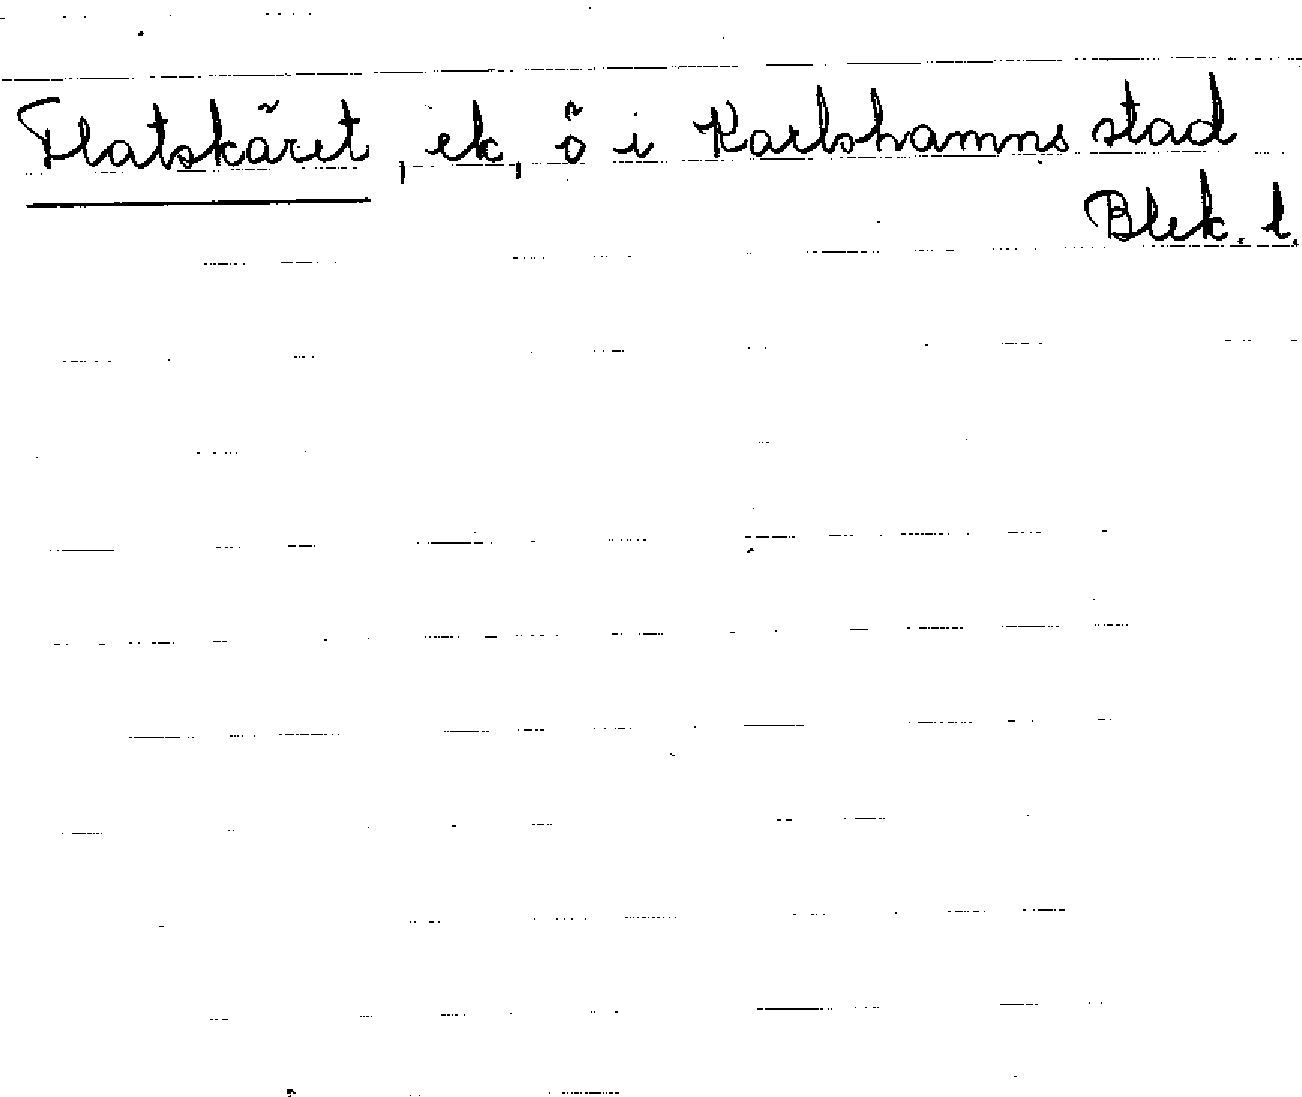 Flatskäret, ek, ö i Karlshamns stad
Blek. l.